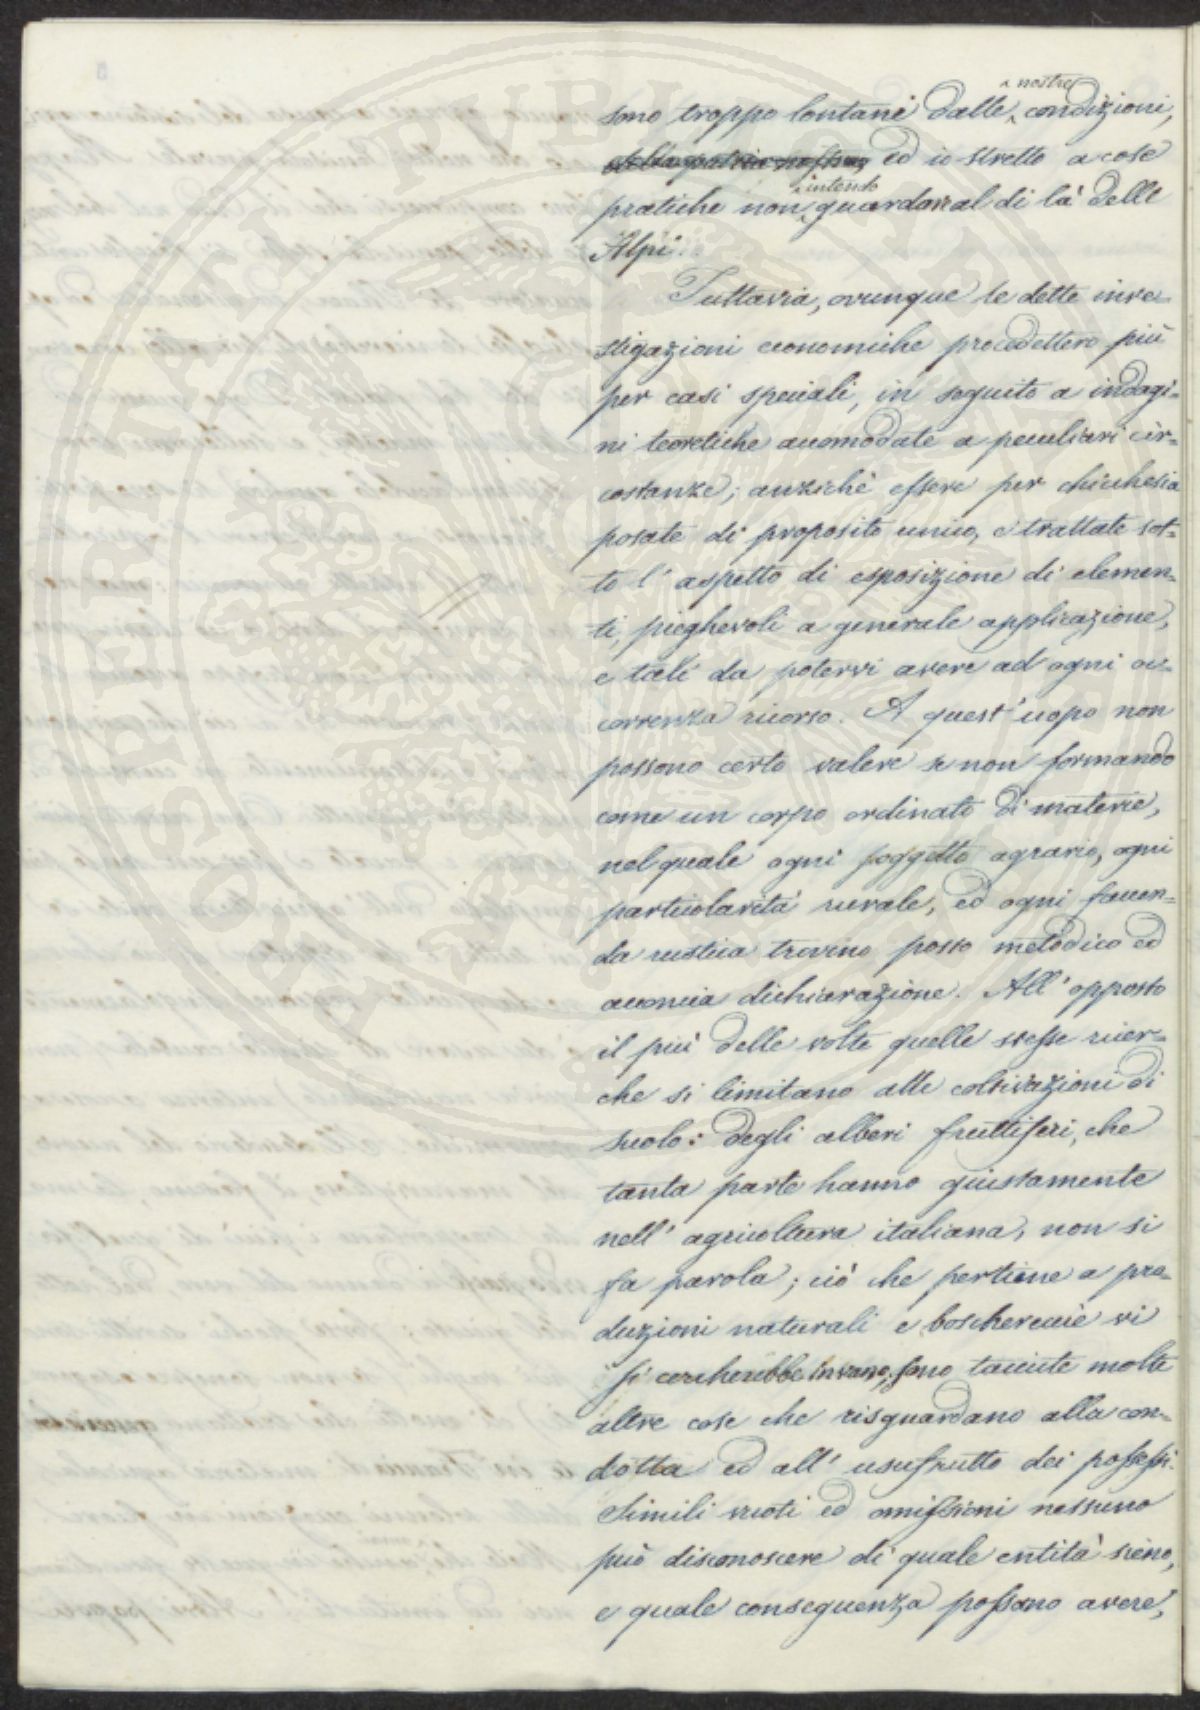 sono troppo lontane dalle nostre condizioni,
della patria nostra, ed io stretto a cose
pratiche non intendo guardare al di là delle
Alpi.
Tuttavia, ovunque le dette inve-
stigazioni economiche procedettero più
per casi speciali, in seguito a indagi-
ni teoretiche accomodate a peculiari cir-
costanze; anzichè essere per chicchesia
posate di proposito unico, e trattate sot-
to l' aspetto di esposizione di elemen-
ti, pieghevoli a generale applicazione,
e tali da potervi avere ad ogni oc-
correnza ricorso. A quest' uopo non
possono certo valere se non formando
come un corpo ordinato di materie,
nel quale ogni soggetto agrario, ogni
particolarità rurale, ed ogni faccen-
da rustica trovino posto metodico ed
acconcia dichiarazione. All' opposto
il più delle volte quelle stesse ricer-
che si limitano alle coltivazioni di
suolo: degli alberi fruttiferi, che
tanta parte hanno giustamente
nell' agricoltura italiana, non si
fa parola; ciò che pertiene a pro-
duzioni naturali e boschereccie vi
si cercherebbe invano; sono taciute molte
altre cose che risguardano alla con-
dotta ed all' usufrutto dei possessi.
Simili vuoti ed omissioni nessuno
può disconoscere di quale entità sieno,
e quale conseguenza possano avere,
SOSPERITATI PUBLICAE